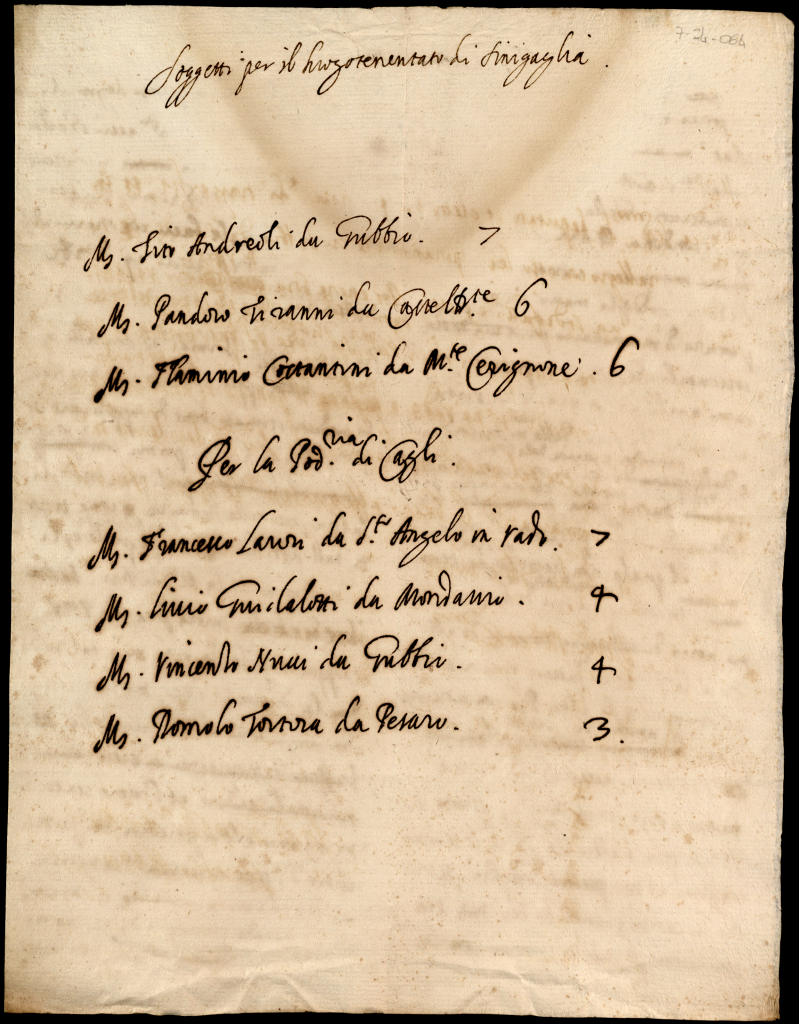 7-24-064
Soggetti per il luogotenentato di Sinigaglia.
Ms. Tito Andreoli da Gubbio. 7
Ms. Pandoro Tiranni da Castel Dte. 6
Ms. Flaminio Costantini da Mte. Cerignone. 6
Per la Podria. di Cagli.
Ms. Francesco Lavori da Sto. Angelo in Vado. 7
Ms. Livio Guidalotti da Mondavio. 4
Ms. Vincenzo Nucci da Gubbio. 4
Ms. Romolo Tortora da Pesaro. 3.